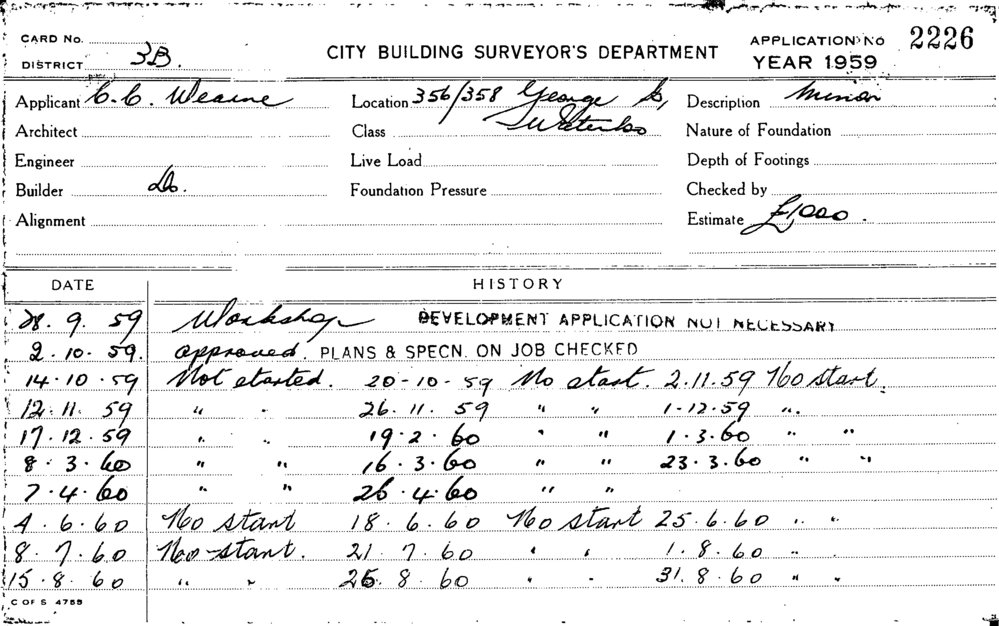 CARD No.
DISTRICT 3B.
CITY BUILDING SURVEYOR'S DEPARTMENT
APPLICATION No 2226
YEAR 1959
Applicant C. C. Wearne Location 356/358 George St, Description Minor
Architect Class Waterloo Nature of Foundation
Engineer Live Load Depth of Footings
Builder Do. Foundation Pressure Checked by
Alignment Estimate £1,000.
DATE HISTORY
28. 9. 59 Workshop DEVELOPMENT APPLICATION NOT NECESSARY
2. 10. 59. approved. PLANS & SPECN. ON JOB CHECKED
14. 10. 59 Not started. 20-10-59 No start. 2.11.59 No start.
12. 11. 59 " " 26. 11. 59 " " 1-12-59 ".
17. 12. 59 " " 19. 2. 60 " " 1. 3. 60 " "
8. 3. 60 " " 16. 3. 60 " " 23. 3. 60 " "
7. 4. 60 " " 26. 4. 60 " "
4. 6. 60 No start 18. 6. 60 No start 25. 6. 60 " "
8. 7. 60 No-start. 21. 7. 60 " " 1. 8. 60 "
15. 8. 60 " " 25. 8. 60 " " 31. 8. 60 " "
C OF S 4755